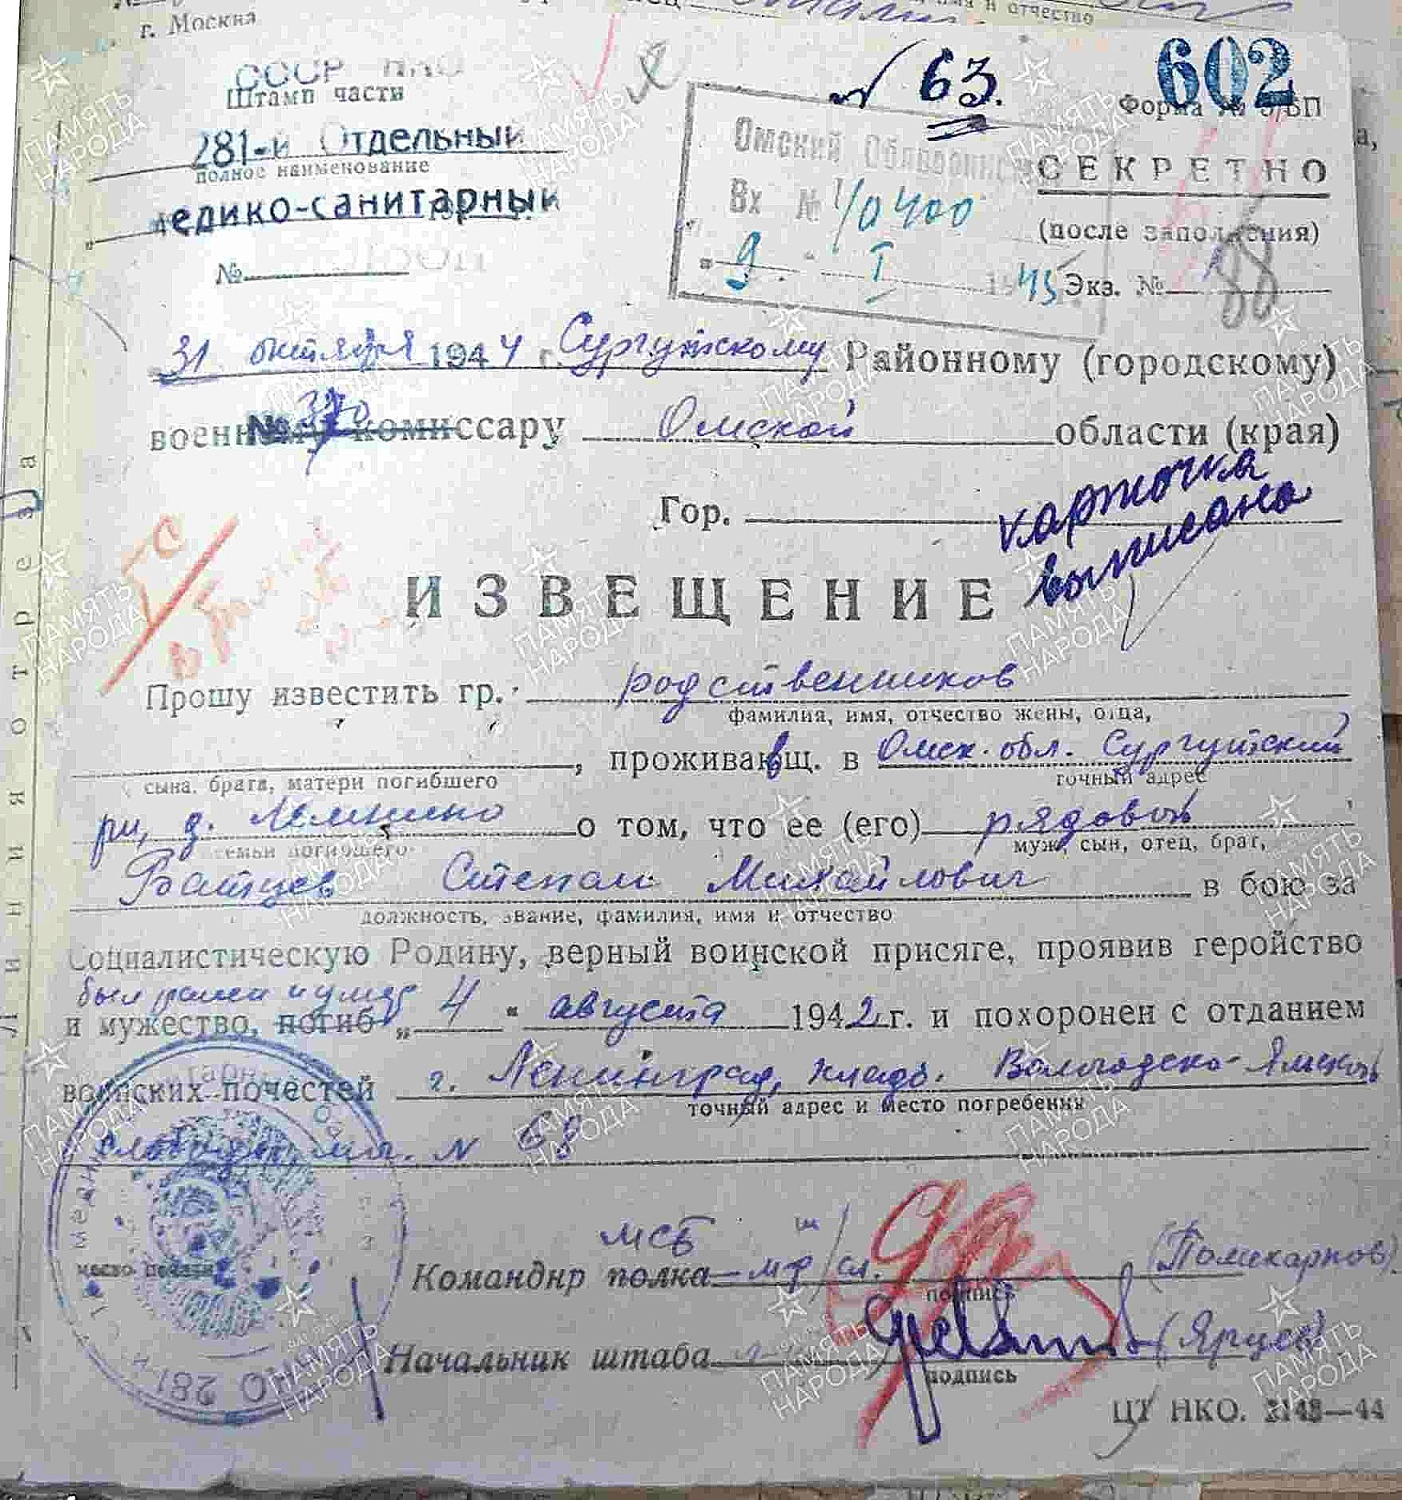 г. Москва
и отчество
СССР НКО
Штамп части
63.
602
Форма № БП
281-й Отдельный
полное наименование
медико-санитарный
№
Омский Облвоенк
Вх № 1/0400
" 9. " I 1945
СЕКРЕТНО
(после заполнения)
Экз. №
88
31 октября 1944 г. Сургутскому Районному (городскому)
военному комиссару Омской области (края)
№ 370
Гор.
карточка
выписана
ИЗВЕЩЕНИЕ
Прошу известить гр. родственников
фамилия, имя, отчество жены, отца,
, проживающ. в Омск. обл. Сургутский
сына, брата, матери погибшего
точный адрес
рн, д. о том, что ее (его) рядовой
семьи погибшего
муж, сын, отец, брат,
Степан Михайлович в бою за
должность, звание, фамилия, имя и отчество
Социалистическую Родину, верный воинской присяге, проявив геройство
был ранен и умер
и мужество, погиб „ 4 " августа 1942 г. и похоронен с отданием
воинских почестей г. Ленинград, кладб. Вологодско-Ямской
точный адрес и место погребения
N 68
МСБ
Командир полка (Поликарпов)
место печати
подпись
Начальник штаба (Ярцев)
подпись
ЦТ НКО. 3143—44
Линия отреза
ПАМЯТЬ НАРОДА